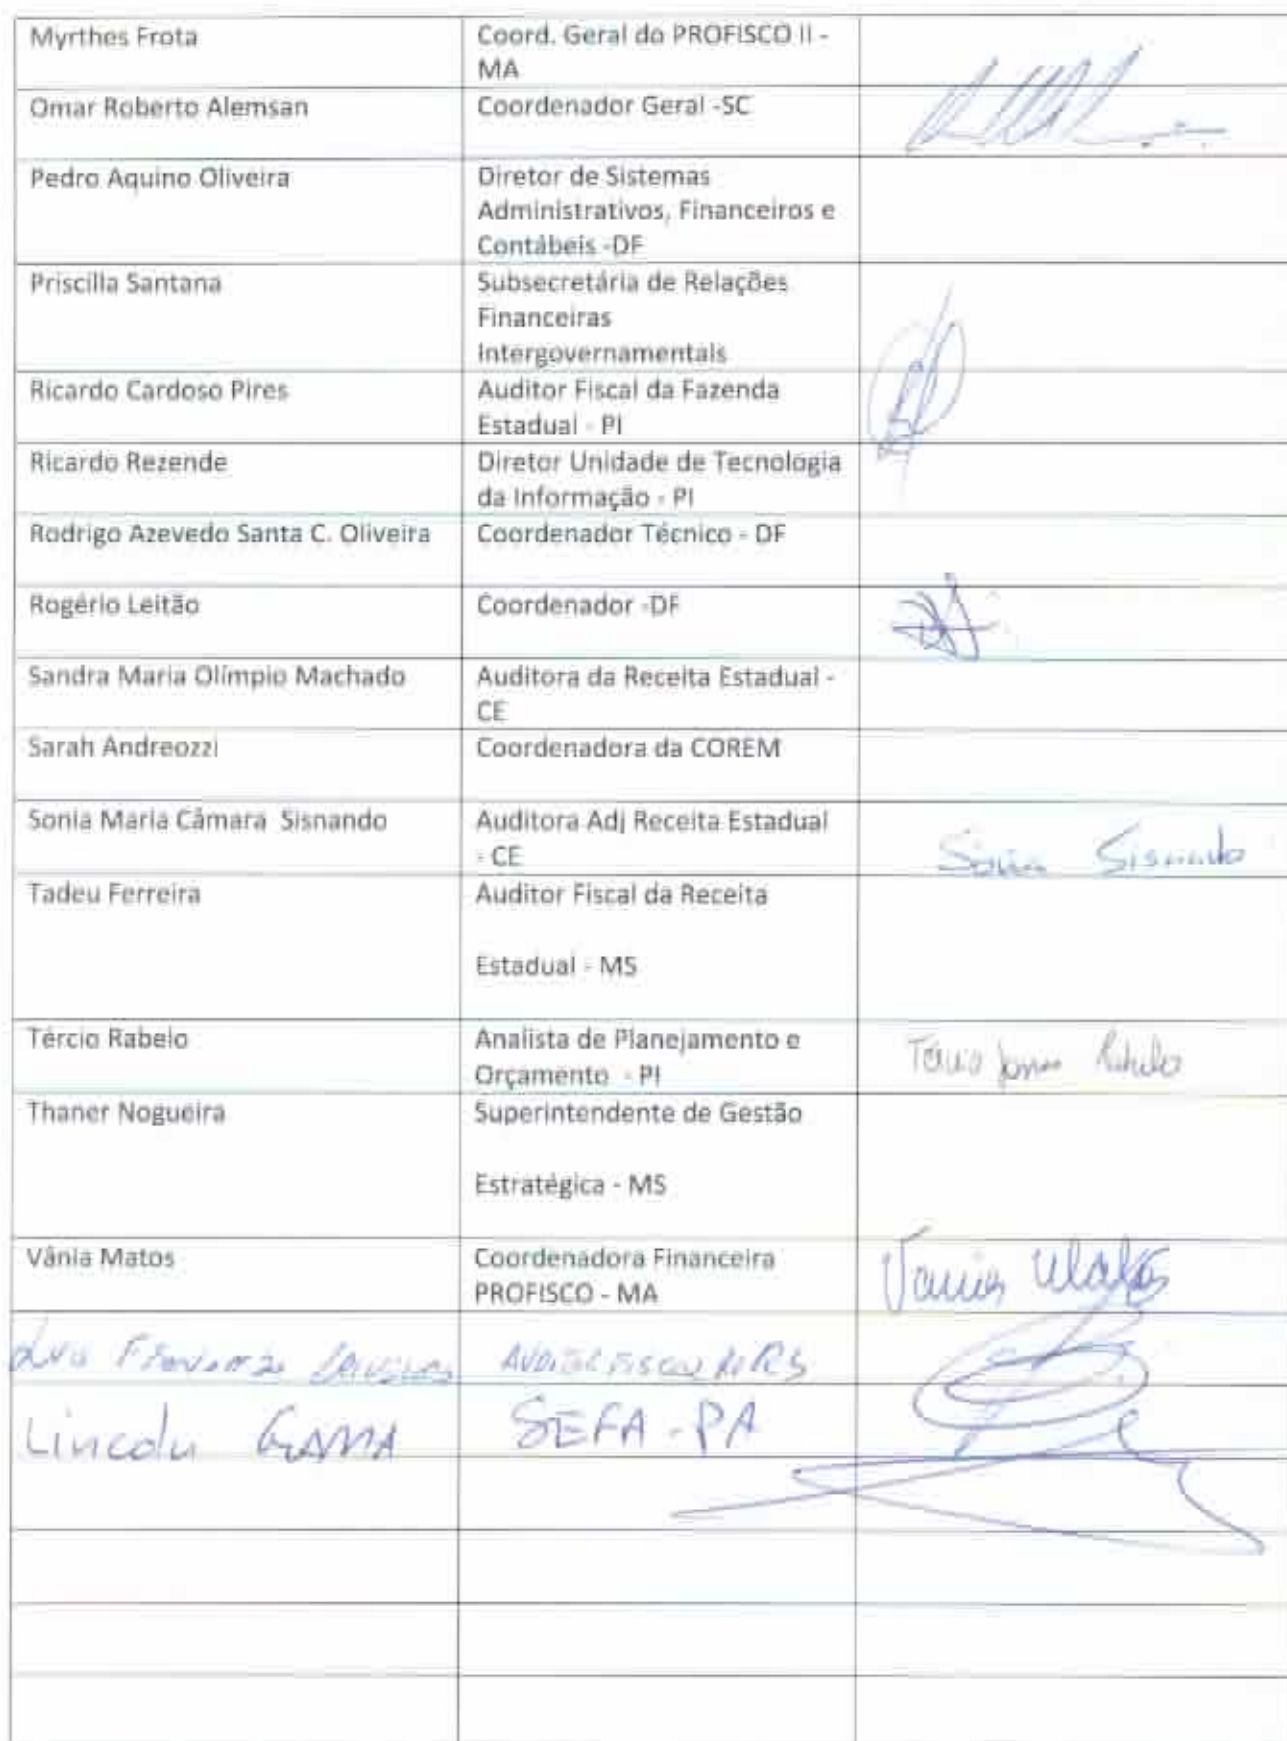 Myrthes Frota
Coord. Geral do PROFISCO II -
MA
Omar Roberto Alemsan
Coordenador Geral -SC
Pedro Aquino Oliveira
Diretor de Sistemas
Administrativos, Financeiros e
Contábeis -DF
Priscilla Santana
Subsecretária de Relações
Financeiras
Intergovernamentais
Ricardo Cardoso Pires
Auditor Fiscal da Fazenda
Estadual - PI
Ricardo Rezende
Diretor Unidade de Tecnologia
da Informação - PI
Rodrigo Azevedo Santa C. Oliveira
Coordenador Técnico - DF
Rogério Leitão
Coordenador -DF
Sandra Maria Olímpio Machado
Auditora da Receita Estadual -
CE
Sarah Andreozzi
Coordenadora da COREM
Sonia Maria Câmara Sisnando
Auditora Adj Receita Estadual
- CE
Sonia Sisnando
Tadeu Ferreira
Auditor Fiscal da Receita
Estadual - MS
Tércio Rabelo
Analista de Planejamento e
Orçamento - PI
Rabelo
Thaner Nogueira
Superintendente de Gestão
Estratégica - MS
Vânia Matos
Coordenadora Financeira
PROFISCO - MA
Vania Matos
AUDITOR FISCAL RS
Lincoln GAMA
SEFA - PA